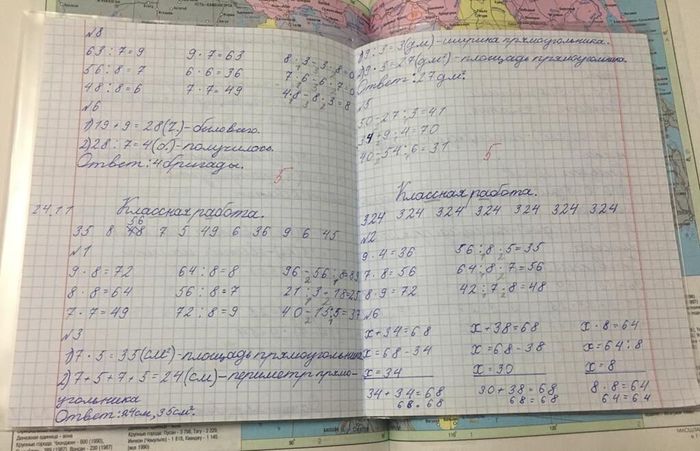 №8
63 : 7 = 9   9 · 7 = 63   8 · 3 - 3 · 8 = 0
56 : 8 = 7   6 · 6 = 36   7 · 6 - 6 · 7 = 0
48 : 8 = 6   7 · 7 = 49   4 · 8 - 8 · 3 = 8
№6
1) 19 + 9 = 28 (ч.) - было всего.
2) 28 : 7 = 4 (б.) - получилось.
Ответ: 4 бригады.
5
24.11 Классная работа.
56
35 8 48 7 5 49 6 36 9 6 45
№1
9 · 8 = 72   64 : 8 = 8   96 - 56 : 8 = 89
8 · 8 = 64   56 : 8 = 7   21 : 3 + 18 = 25
7 · 7 = 49   72 : 8 = 9   40 - 15 : 5 = 37
№3
1) 7 · 5 = 35 (см²) - площадь прямоугольник
2) 7 + 5 + 7 + 5 = 24 (см) - периметр прямо-
угольника
Ответ: 24см, 35см².
1) 9 : 3 = 3 (дм) - ширина прямоугольника.
2) 9 · 3 = 27 (дм²) - площадь прямоугольника.
Ответ: 27 дм².
№5
50 - 27 : 3 = 41
34 + 9 · 4 = 70
40 - 54 : 6 = 31
5
Классная работа.
324 324 324 324 324 324 324
№2
9 · 4 = 36   56 : 8 · 5 = 35
7 · 8 = 56   64 : 8 · 7 = 56
8 · 9 = 72   42 : 7 · 8 = 48
№6
х + 34 = 68   х + 38 = 68   х · 8 = 64
х = 68 - 34   х = 68 - 38   х = 64 : 8
х = 34   х = 30   х = 8
34 + 34 = 68   30 + 38 = 68   8 · 8 = 64
68 = 68   68 = 68   64 = 64